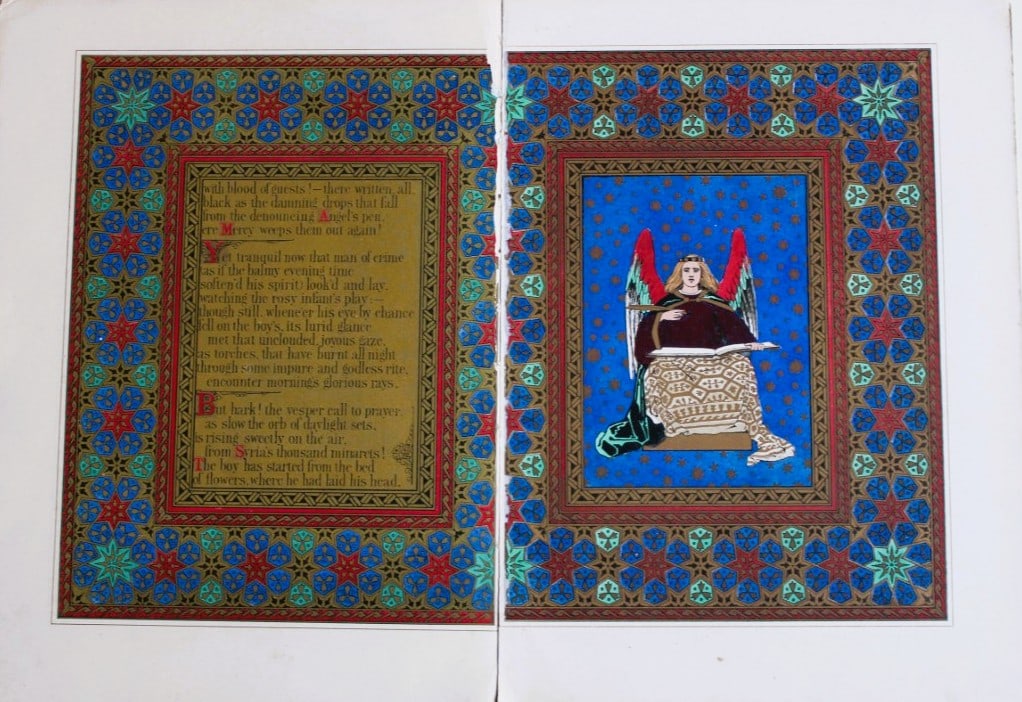 with blood of guests!—there written, all,
black as the damning drops that fall
from the denouncing Angel's pen,
ere Mercy weeps them out again!
Yet tranquil now that man of crime
(as if the balmy evening time
soften'd his spirit) look'd and lay,
watching the rosy infant's play:—
though still, whene'er his eye by chance
fell on the boy's, its lurid glance
met that unclouded, joyous gaze,
as torches, that have burnt all night
through some impure and godless rite,
encounter morning's glorious rays.
But hark! the vesper call to prayer,
as slow the orb of daylight sets,
is rising sweetly on the air,
from Syria's thousand minarets!
The boy has started from the bed
of flowers, where he had laid his head,